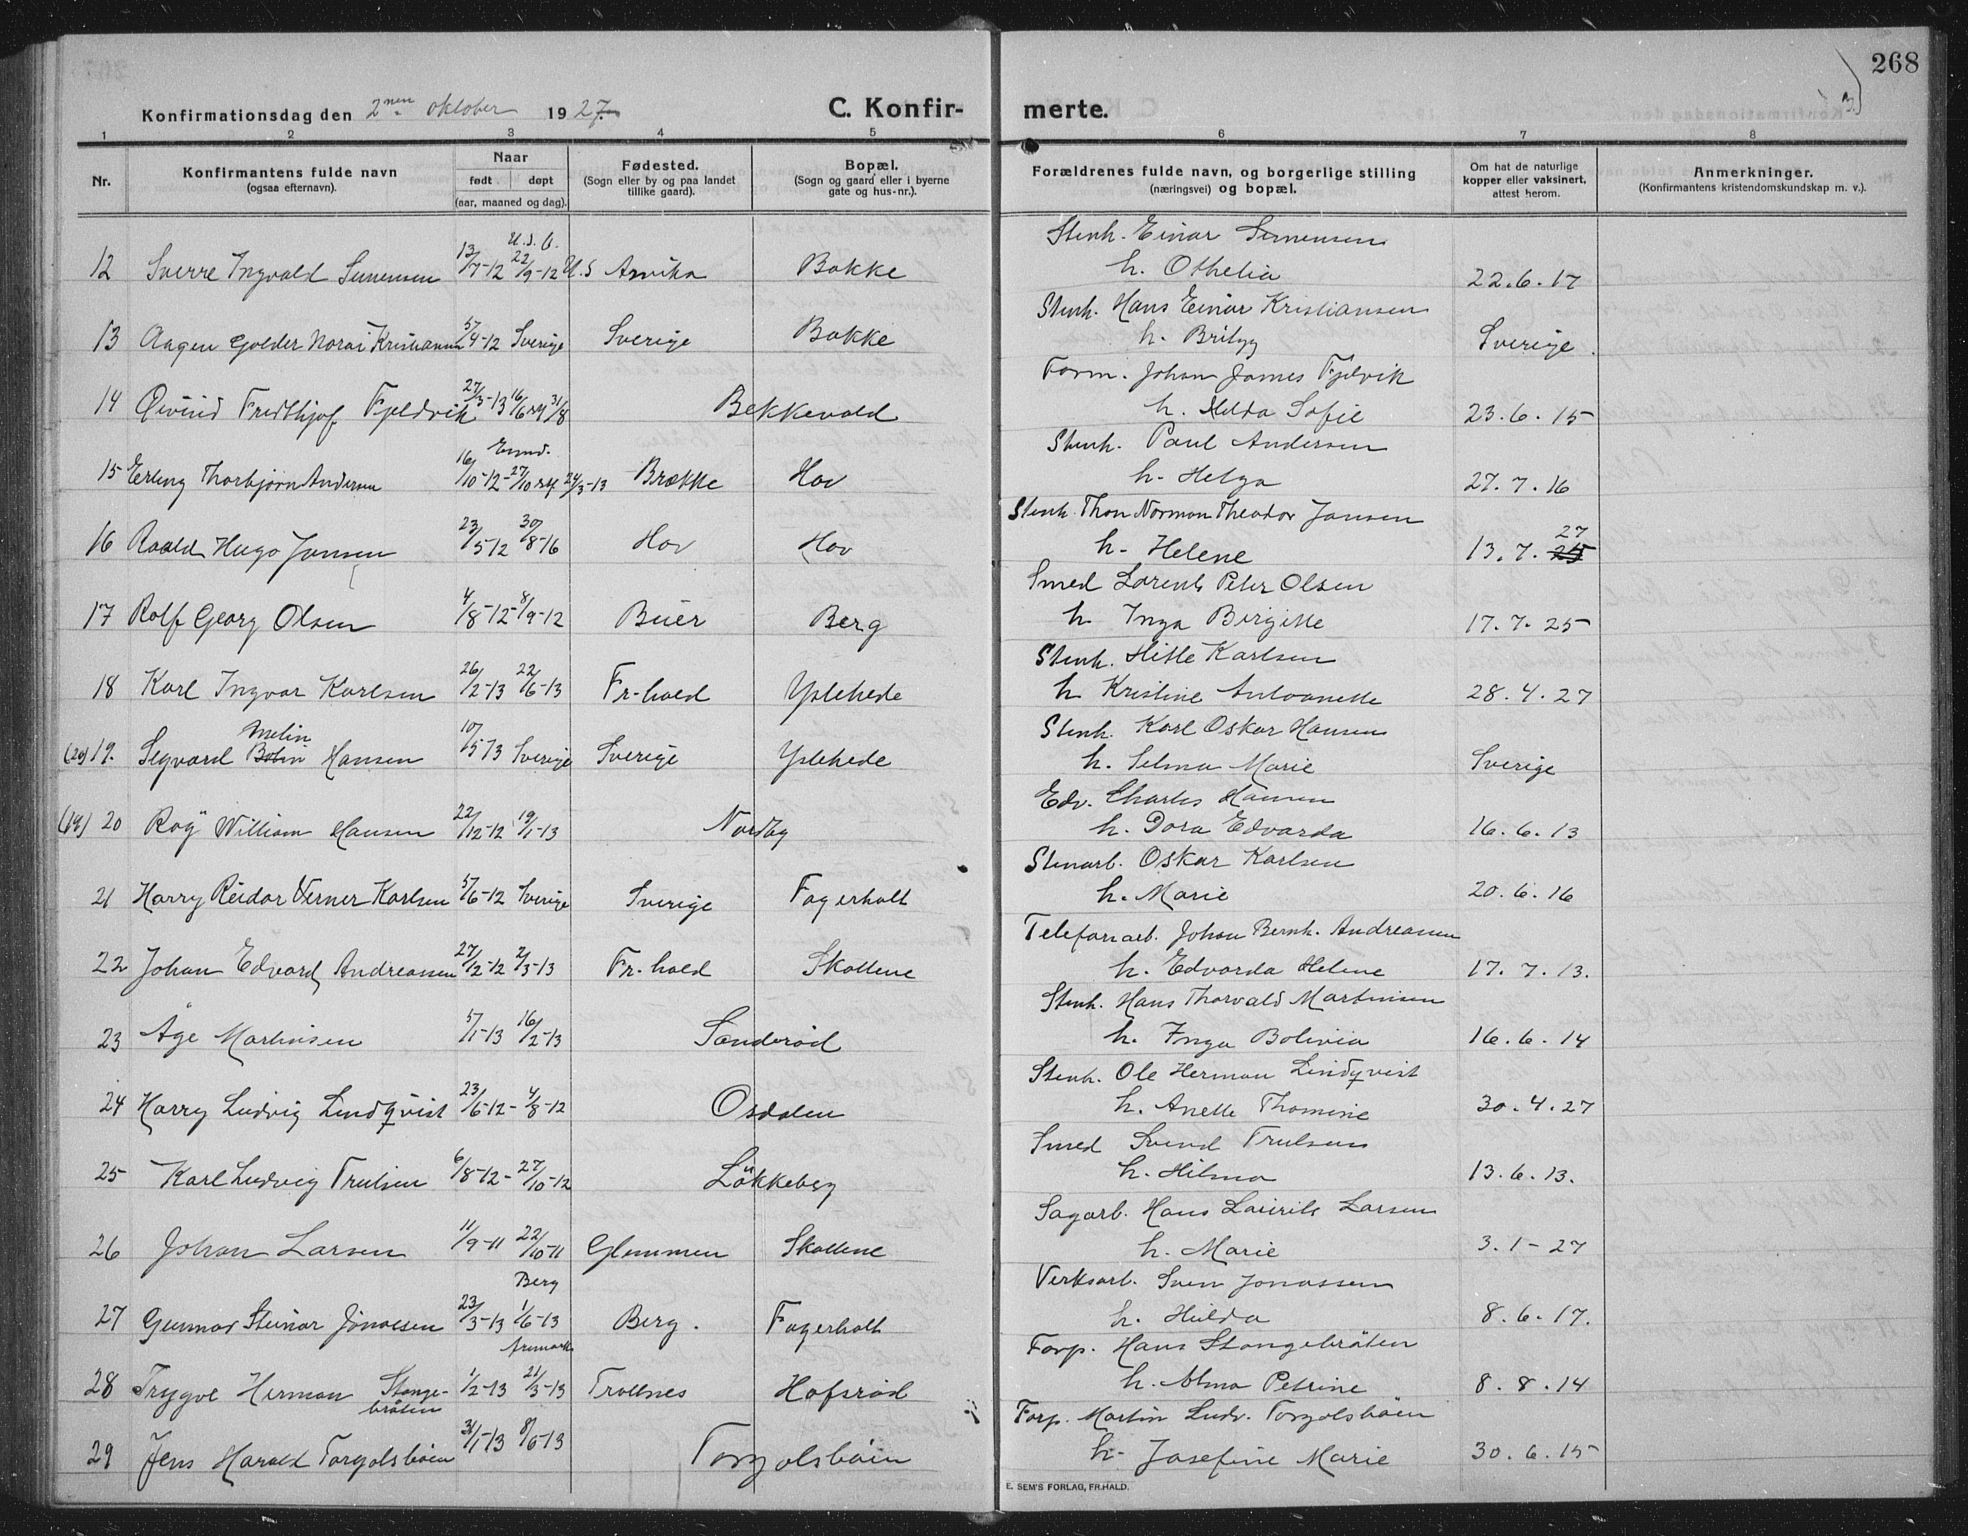 268
Konfirmationsdag den 2nen oktober 1927
C. Konfir-merte.
1 2 3 4 5 6 7 8
Nr. Konfirmantens fulde navn (ogsaa efternavn). Naar født døpt (aar, maaned og dag). Fødested. (Sogn eller by og paa landet tillike gaard). Bopæl. (Sogn og gaard eller i byerne gate og hus-nr.). Forældrenes fulde navn, og borgerlige stilling (næringsvei) og bopæl. Om hat de naturlige kopper eller vaksinert, attest herom. Anmerkninger. (Konfirmantens kristendomskundskap m. v.).
Stenh. Einar Simensen
12 Sverre Ingvald Simensen 13/7-12 22/9-12 U.S Arvika Bakke h. Othelia 22.6.17
Stenh. Hans Einar Kristiansen
13 Aagen Golder Norai Kristiansen 5/4-12 Sverige Sverige Bakke h. Sverige
Form. Johan James Fjeldvik
14 Øivind Fredthjof Fjeldvik 27/3-13 16/6 31/8 Bekkevold h. Hilda Sofie 23.6.15
Stenh. Paul Andersen
15 Erling Thorbjørn Andersen 16/10-12 27/10 24/3-13 Brække Hov h. Helga 27.7.16
Stenh. Thon Norman Theodor Jansen
16 Roald Hugo Jansen 23/5-12 30/8-16 Hov Hov h. Helene 13.7. 27
Smed Lorents Peter Olsen
17 Rolf Georg Olsen 4/8-12 8/9-12 Buer Berg h Inga Birgitte 17.7.25
Stenh. Hitle Karlsen
18 Karl Ingvar Karlsen 26/2-13 22/6-13 Fr-hald Yslehede h Kristine Antoanette 28.4.27
Stenh. Karl Oskar Hansen
Melin
(20) 19. Segvard Bolin Hansen 10/5 13 Sverige Sverige Yslehede h. Selma Marie Sverige
Edv. Charles Hansen
(19) 20 Roÿ William Hansen 22/12-12 19/1-13 Nordby h. Dora Edvarda 16.6.13
Stenarb. Oskar Karlsen
21 Harry Reidar Verner Karlsen 5/6-12 Sverige Sverige Fagerholt h. Marie 20.6.16
Telefonarb. Johan Bernh. Andreassen
22 Johan Edvard Andreassen 27/12-12 2/3-13 Fr.hald Skottene h. Edvarda Helene 17.7.13.
Stenh. Hans Thorvald Martinsen
23 Åge Martinsen 5/1-13 16/2-13 Sanderød h. Inga Bolivia 16.6.14
Stenh. Ole Herman Lindqvist
24 Harry Ludvig Lindqvist 23/6-12 - 4/8-12 Osdalen h. Anette Thomine 30.4.27
Smed Svend Trulsen
25 Karl Ludvig Trulsen 6/8-12 - 27/10-12 Løkkeberg h. Hilma 13.6.13.
Sagarb. Hans Laurits Larsen
26 Johan Larsen 11/9-11 22/10-11 Glemmen Skottene h. Marie 3.1-27
Berg
Verksarb. Sven Jonassen
27 Gunnar Steinar Jonassen 23/3-13 1/6-13 Berg. Fagerholt h. Hulda 8.6.17.
Aremark
Forp. Hans Stangebråten
28 Trygve Herman Stange-bråten 1/2-13 21/3-13 Trollnes Hafsrød h. Alma Petrine 8.8.14
Forp. Martin Ludv. Torgolsbøen
29 Jens Harald Torgolsbøen 31/1-13 8/6-13 Torgolsbøen h- Josefine Marie 30.6.15
E. SEM'S FORLAG, FR.HALD.